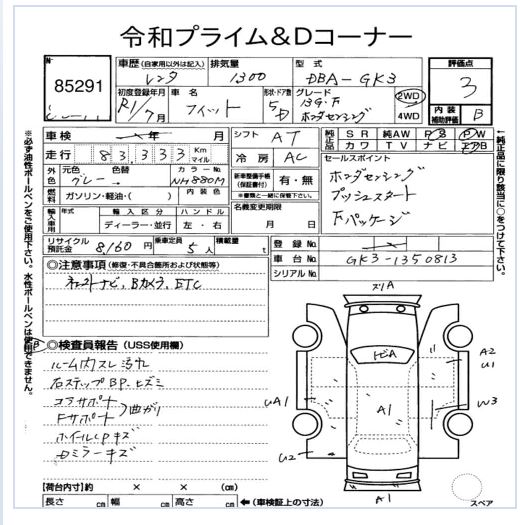 令和プライム&Dコーナー
No.
85291
車歴(自家用以外は記入)
レンタ
排気量
1300
型式
DBA-GK3
評価点
3
初度登録年月
R1/7月
車名
フィット
形状・ドア数
5D
グレード
13G・F
ホンダセンシング
2WD
4WD
内装
補助評価
B
車検 年 月
走行 83,333 Km マイル
シフト AT
冷房 AC
純正品 SR 純AW PS PW
カワ TV ナビ エアB
外色 元色 色替 カラーNo.
グレー NH880M
燃料 ガソリン・軽油・( ) 内装色
新車整備手帳
(保証書付) 有・無
※書類と一緒に保管下さい。
セールスポイント
ホンダセンシング
プッシュスタート
Fパッケージ
輸入車用 年式 輸入区分 ハンドル
ディーラー・並行 左・右
名義変更期限
月 日
リサイクル
預託金 8160円
乗車定員 5人
積載量 t
登録No.
車台No. GK3-1350813
シリアルNo.
◎注意事項(修復・不具合箇所および状態等)
ナビ、Bカメラ、ETC
◎検査員報告(USS使用欄)
ルーム内スレ 汚れ
右ステップBP、ヒズミ
コアサポート
Fサポート 曲がり
ホイールCPキズ
ミラーキズ
【荷台内寸】約 × × (cm)
長さ cm 幅 cm 高さ cm ←(車検証上の寸法)
※必ず油性ボールペンをご使用下さい。水性ボールペンは使用できません。
←純正品に限り該当に○をつけて下さい。
スリA
トビA
A2
U1
UA1
A1
W3
U2
A1
スペア